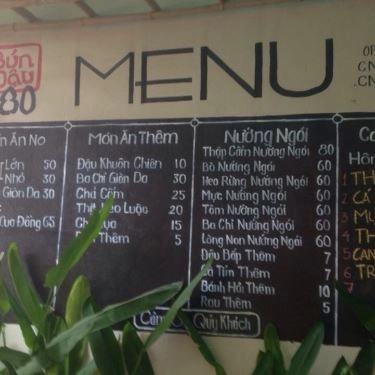 Bún
Đậu
80
MENU
n Ăn No
Lớn 50
Nhỏ 30
Giòn Da 30
Cua Đồng 65
Món Ăn Thêm
Đậu Khuôn Chiên 10
Ba Chỉ Giòn Da 30
Chả Cốm 25
Luộc 20
15
Thêm 5
Nướng Ngói
Thập Cẩm Nướng Ngói 80
Bò Nướng Ngói 60
Heo Rừng Nướng Ngói 60
Mực Nướng Ngói 60
Tôm Nướng Ngói 60
Ba Chỉ Nướng Ngói 60
Lòng Non Nướng Ngói 60
Đậu Bắp Thêm 7
Cà Tím Thêm 7
Bánh Hỏi Thêm 10
Rau Thêm 5
Quý Khách
1 TH
2 CÁ
3 MỰ
4 TH
5 CAN
6 TR
7